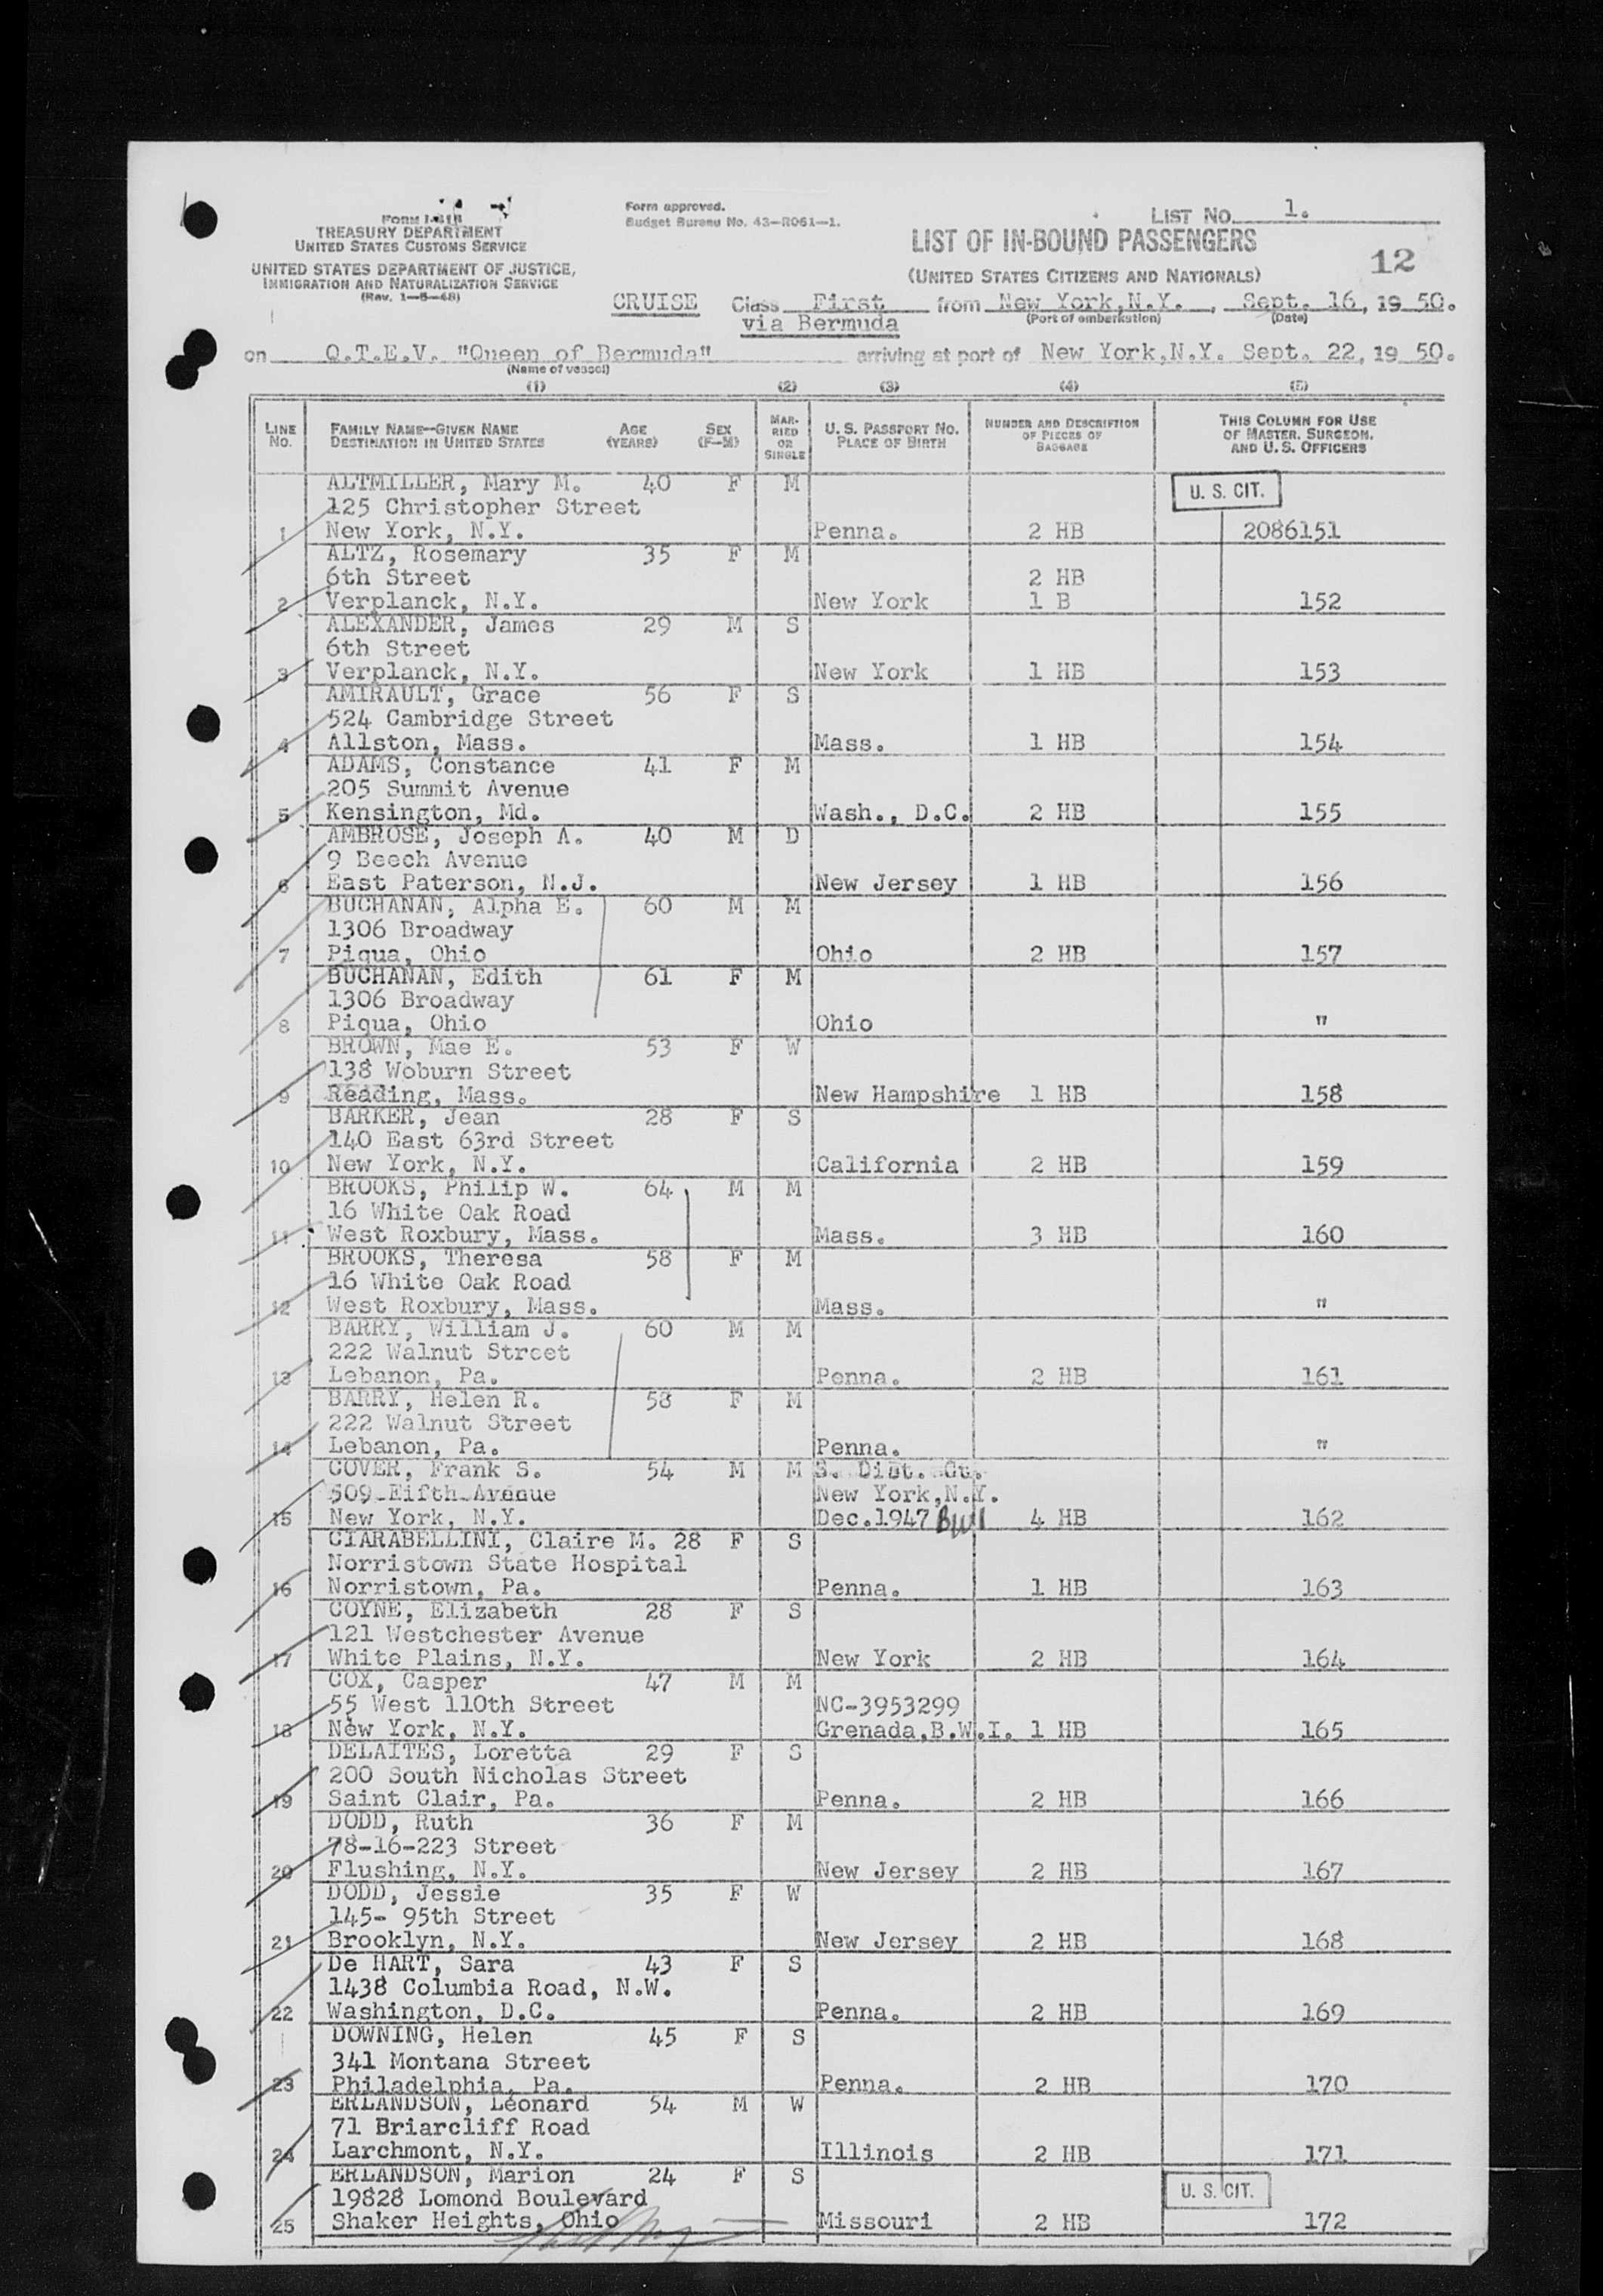 Form I-418
TREASURY DEPARTMENT
UNITED STATES CUSTOMS SERVICE
UNITED STATES DEPARTMENT OF JUSTICE,
IMMIGRATION AND NATURALIZATION SERVICE
(Rev. 1-5-48)
Form approved.
Budget Bureau No. 43-R061-1.
LIST No. 1.
LIST OF IN-BOUND PASSENGERS
12
(UNITED STATES CITIZENS AND NATIONALS)
CRUISE Class First from New York, N.Y., Sept. 16, 1950.
via Bermuda (Port of embarkation) (Date)
on Q.T.E.V. "Queen of Bermuda" arriving at port of New York, N.Y. Sept. 22, 1950.
(Name of vessel)
(1) (2) (3) (4) (5)
LINE No. FAMILY NAME—GIVEN NAME DESTINATION IN UNITED STATES AGE (YEARS) SEX (F—M) MARRIED OR SINGLE U. S. PASSPORT NO. PLACE OF BIRTH NUMBER AND DESCRIPTION OF PIECES OF BAGGAGE THIS COLUMN FOR USE OF MASTER, SURGEON, AND U. S. OFFICERS
ALTMILLER, Mary M. 40 F M U. S. CIT.
125 Christopher Street
1 New York, N.Y. Penna. 2 HB 2086151
ALTZ, Rosemary 35 F M
6th Street 2 HB
2 Verplanck, N.Y. New York 1 B 152
ALEXANDER, James 29 M S
6th Street
3 Verplanck, N.Y. New York 1 HB 153
AMIRAULT, Grace 56 F S
524 Cambridge Street
4 Allston, Mass. Mass. 1 HB 154
ADAMS, Constance 41 F M
205 Summit Avenue
5 Kensington, Md. Wash., D.C. 2 HB 155
AMBROSE, Joseph A. 40 M D
9 Beech Avenue
6 East Paterson, N.J. New Jersey 1 HB 156
BUCHANAN, Alpha E. 60 M M
1306 Broadway
7 Piqua, Ohio Ohio 2 HB 157
BUCHANAN, Edith 61 F M
1306 Broadway
8 Piqua, Ohio Ohio "
BROWN, Mae E. 53 F W
138 Woburn Street
9 Reading, Mass. New Hampshire 1 HB 158
BARKER, Jean 28 F S
140 East 63rd Street
10 New York, N.Y. California 2 HB 159
BROOKS, Philip W. 64 M M
16 White Oak Road
11 West Roxbury, Mass. Mass. 3 HB 160
BROOKS, Theresa 58 F M
16 White Oak Road
12 West Roxbury, Mass. Mass. "
BARRY, William J. 60 M M
222 Walnut Street
13 Lebanon, Pa. Penna. 2 HB 161
BARRY, Helen R. 58 F M
222 Walnut Street
14 Lebanon, Pa. Penna. "
COVER, Frank S. 54 M M S. Dist. Ct.
509 Fifth Avenue New York, N.Y.
15 New York, N.Y. Dec.1947 4 HB 162
CIARABELLINI, Claire M. 28 F S
Norristown State Hospital
16 Norristown, Pa. Penna. 1 HB 163
COYNE, Elizabeth 28 F S
121 Westchester Avenue
17 White Plains, N.Y. New York 2 HB 164
COX, Casper 47 M M
55 West 110th Street NC-3953299
18 New York, N.Y. Grenada,B.W.I. 1 HB 165
DELAITES, Loretta 29 F S
200 South Nicholas Street
19 Saint Clair, Pa. Penna. 2 HB 166
DODD, Ruth 36 F M
78-16-223 Street
20 Flushing, N.Y. New Jersey 2 HB 167
DODD, Jessie 35 F W
145- 95th Street
21 Brooklyn, N.Y. New Jersey 2 HB 168
De HART, Sara 43 F S
1438 Columbia Road, N.W.
22 Washington, D.C. Penna. 2 HB 169
DOWNING, Helen 45 F S
341 Montana Street
23 Philadelphia, Pa. Penna. 2 HB 170
ERLANDSON, Leonard 54 M W
71 Briarcliff Road
24 Larchmont, N.Y. Illinois 2 HB 171
ERLANDSON, Marion 24 F S
19828 Lomond Boulevard U. S. CIT.
25 Shaker Heights, Ohio Missouri 2 HB 172